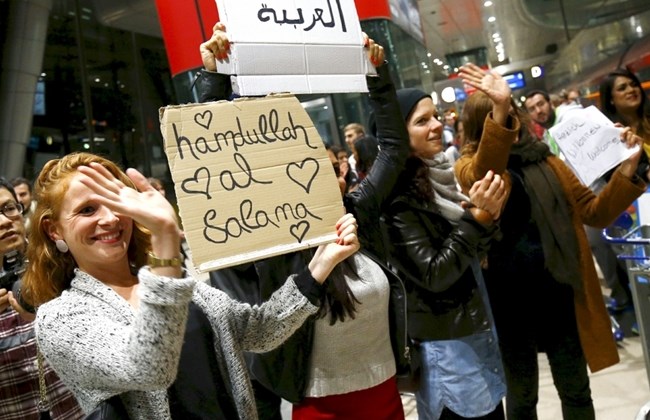 العربية
hamdullah
al
Salama